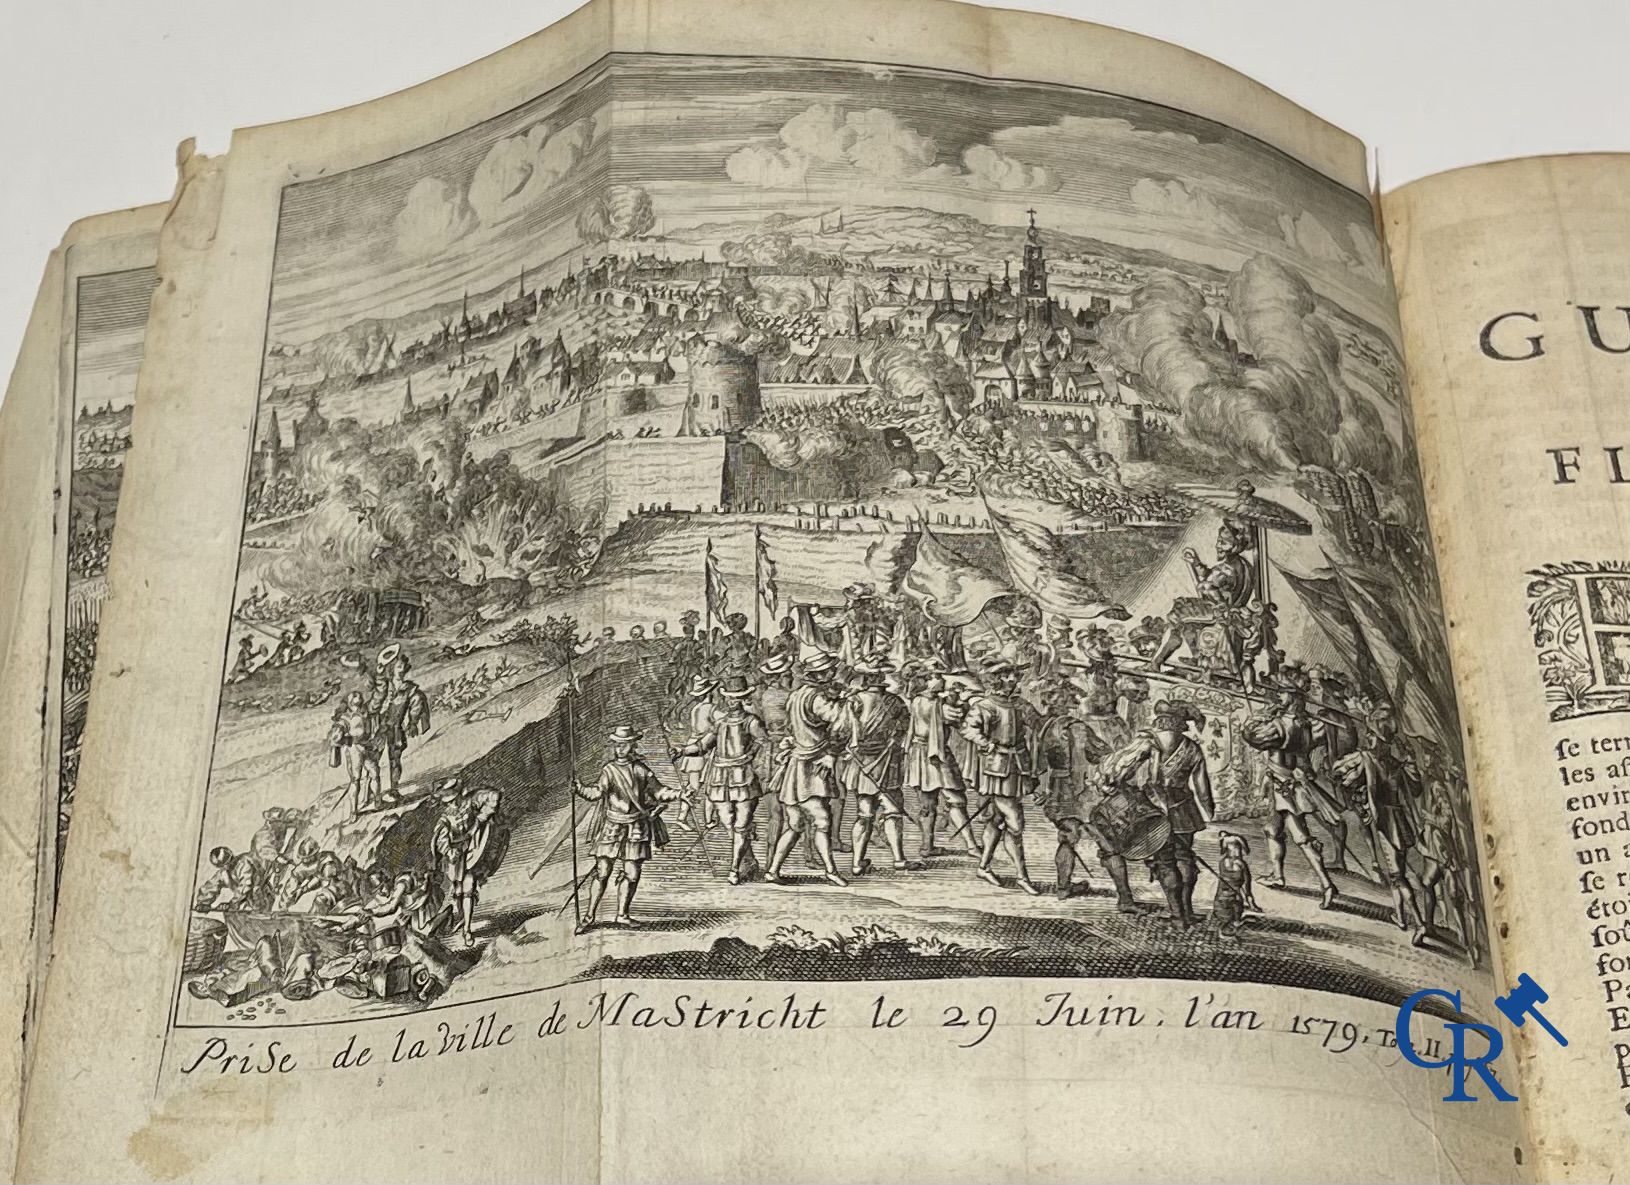 PriSe de la Ville de MaStricht le 29 Juin. l'an 1579.
GU
FL
ſe ter
les af
envir
fond
un a
ſe r
étoi
ſoû
for
Pa
E
CR